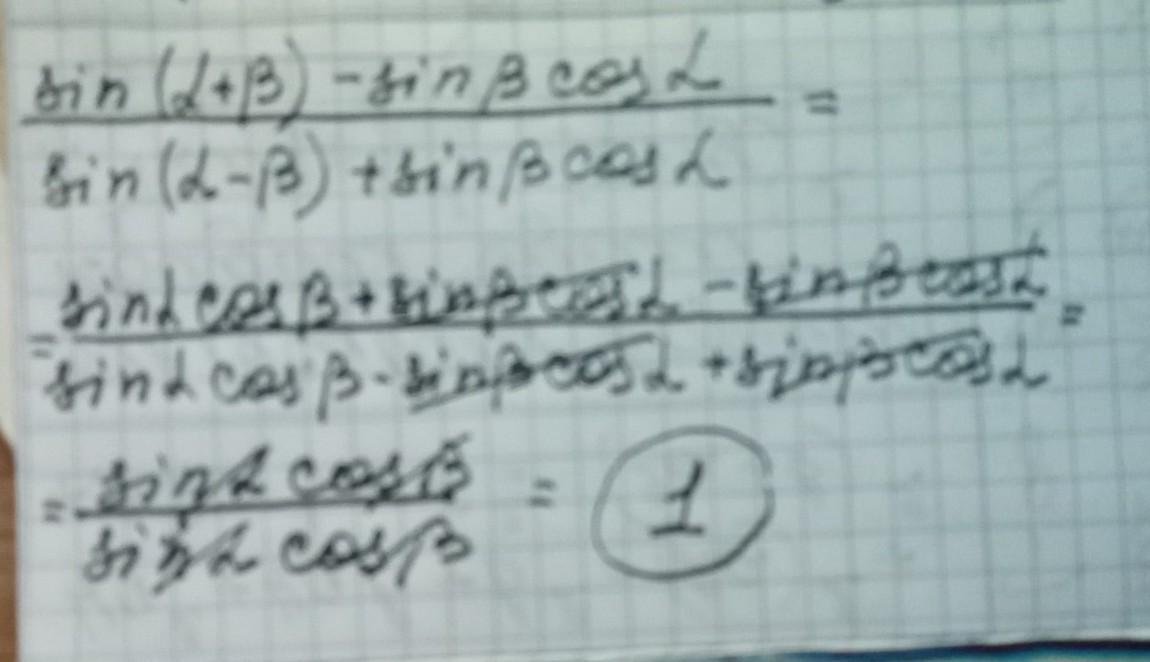 sin (α+β) - sin β cos α / sin (α-β) + sin β cos α =
= sin α cos β + sin β cos α - sin β cos α / sin α cos β - sin β cos α + sin β cos α =
= sin α cos β / sin α cos β = 1